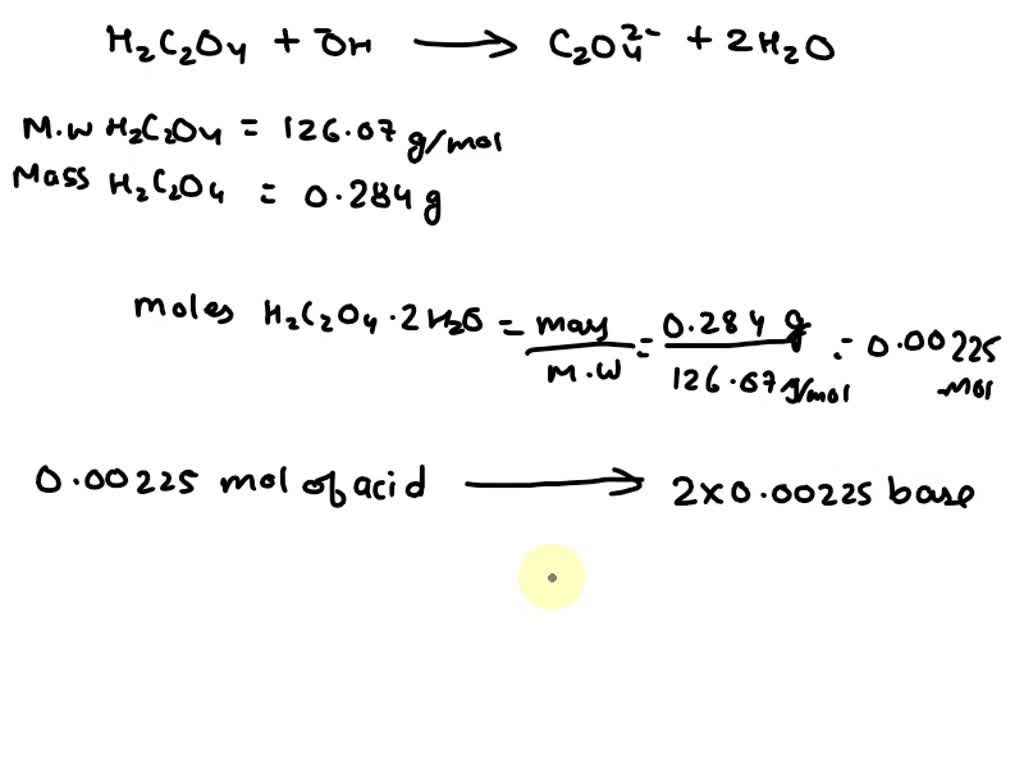 H₂C₂O₄ + ⁻OH ⟶ C₂O₄²⁻ + 2H₂O
M.W H₂C₂O₄ = 126.07 g/mol
Mass H₂C₂O₄ = 0.284 g
moles H₂C₂O₄·2H₂O = mass/M.W = 0.284 g/126.07 g/mol = 0.00225 mol
0.00225 mol of acid ⟶ 2×0.00225 base